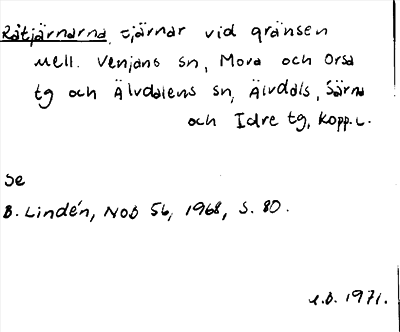 Råtjärnarna, tjärnar vid gränsen
mell. Venjans sn, Mora och Orsa
tg och Älvdalens sn, Älvdals, Särna
och Idre tg, Kopp.l.
Se
B. Lindén, NoB 56, 1968, s. 80.
1971.